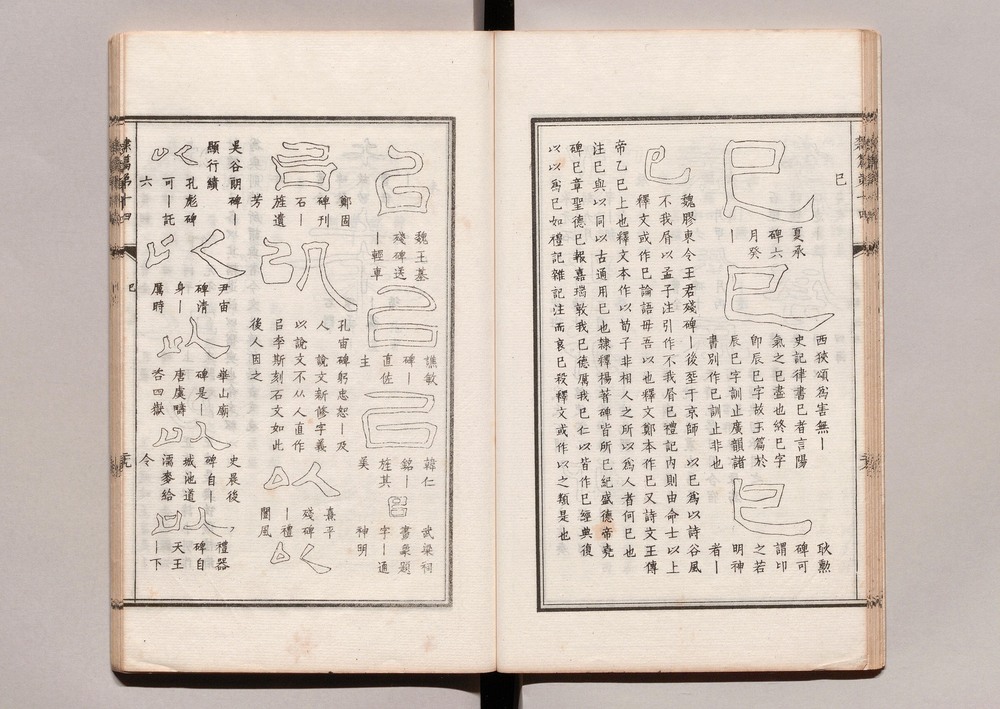 巳
夏承
碑六
月癸
｜
巳
西狹頌爲害無｜
史記律書巳者言陽
氣之巳盡也終巳字
卽辰巳字故玉篇於
辰巳字訓止廣韻諸
書別作已訓止非也
巳
耿勲
碑可
謂卬
之若
明神
者｜
巳
魏膠東令王君殘碑｜後至于京師
以巳爲以詩谷風
不我屑以孟子注引作不我屑巳禮記內則由命士以上
釋文或作巳論語毋吾以也釋文鄭本作巳又詩文王傳
帝乙巳上也釋文本作以荀子非相人之所以爲人者何巳也
注巳與以同以古通用巳也隸釋楊著碑皆所巳紀盛德帝堯
碑巳章聖德巳報嘉瑞敦我巳德厲我巳仁以皆作巳經典復
以以爲巳如禮記雜記注而哀巳殺釋文或作以之類是也
魏王基
殘碑送
｜輕車
譙敏
碑｜
直佐
主
韓仁
銘｜
旌其
美
武梁祠
畫象題
字｜通
神明
鄭固
碑刊
石｜
旌遺
芳
孔宙碑躬忠恕｜及
人
說文新修字義
以說文不从人直作
㠯李斯刻石文如此
後人因之
熹平
殘碑
｜禮
闇風
吳谷朗碑｜
顯行績
孔彪碑
可｜託
六
尹宙
碑清
身｜
厲時
華山廟
碑是｜
唐虞疇
咨四嶽
史晨後
碑自｜
城池道
濡麥給
令
禮器
碑自
天王
｜下
隸篇弟十四